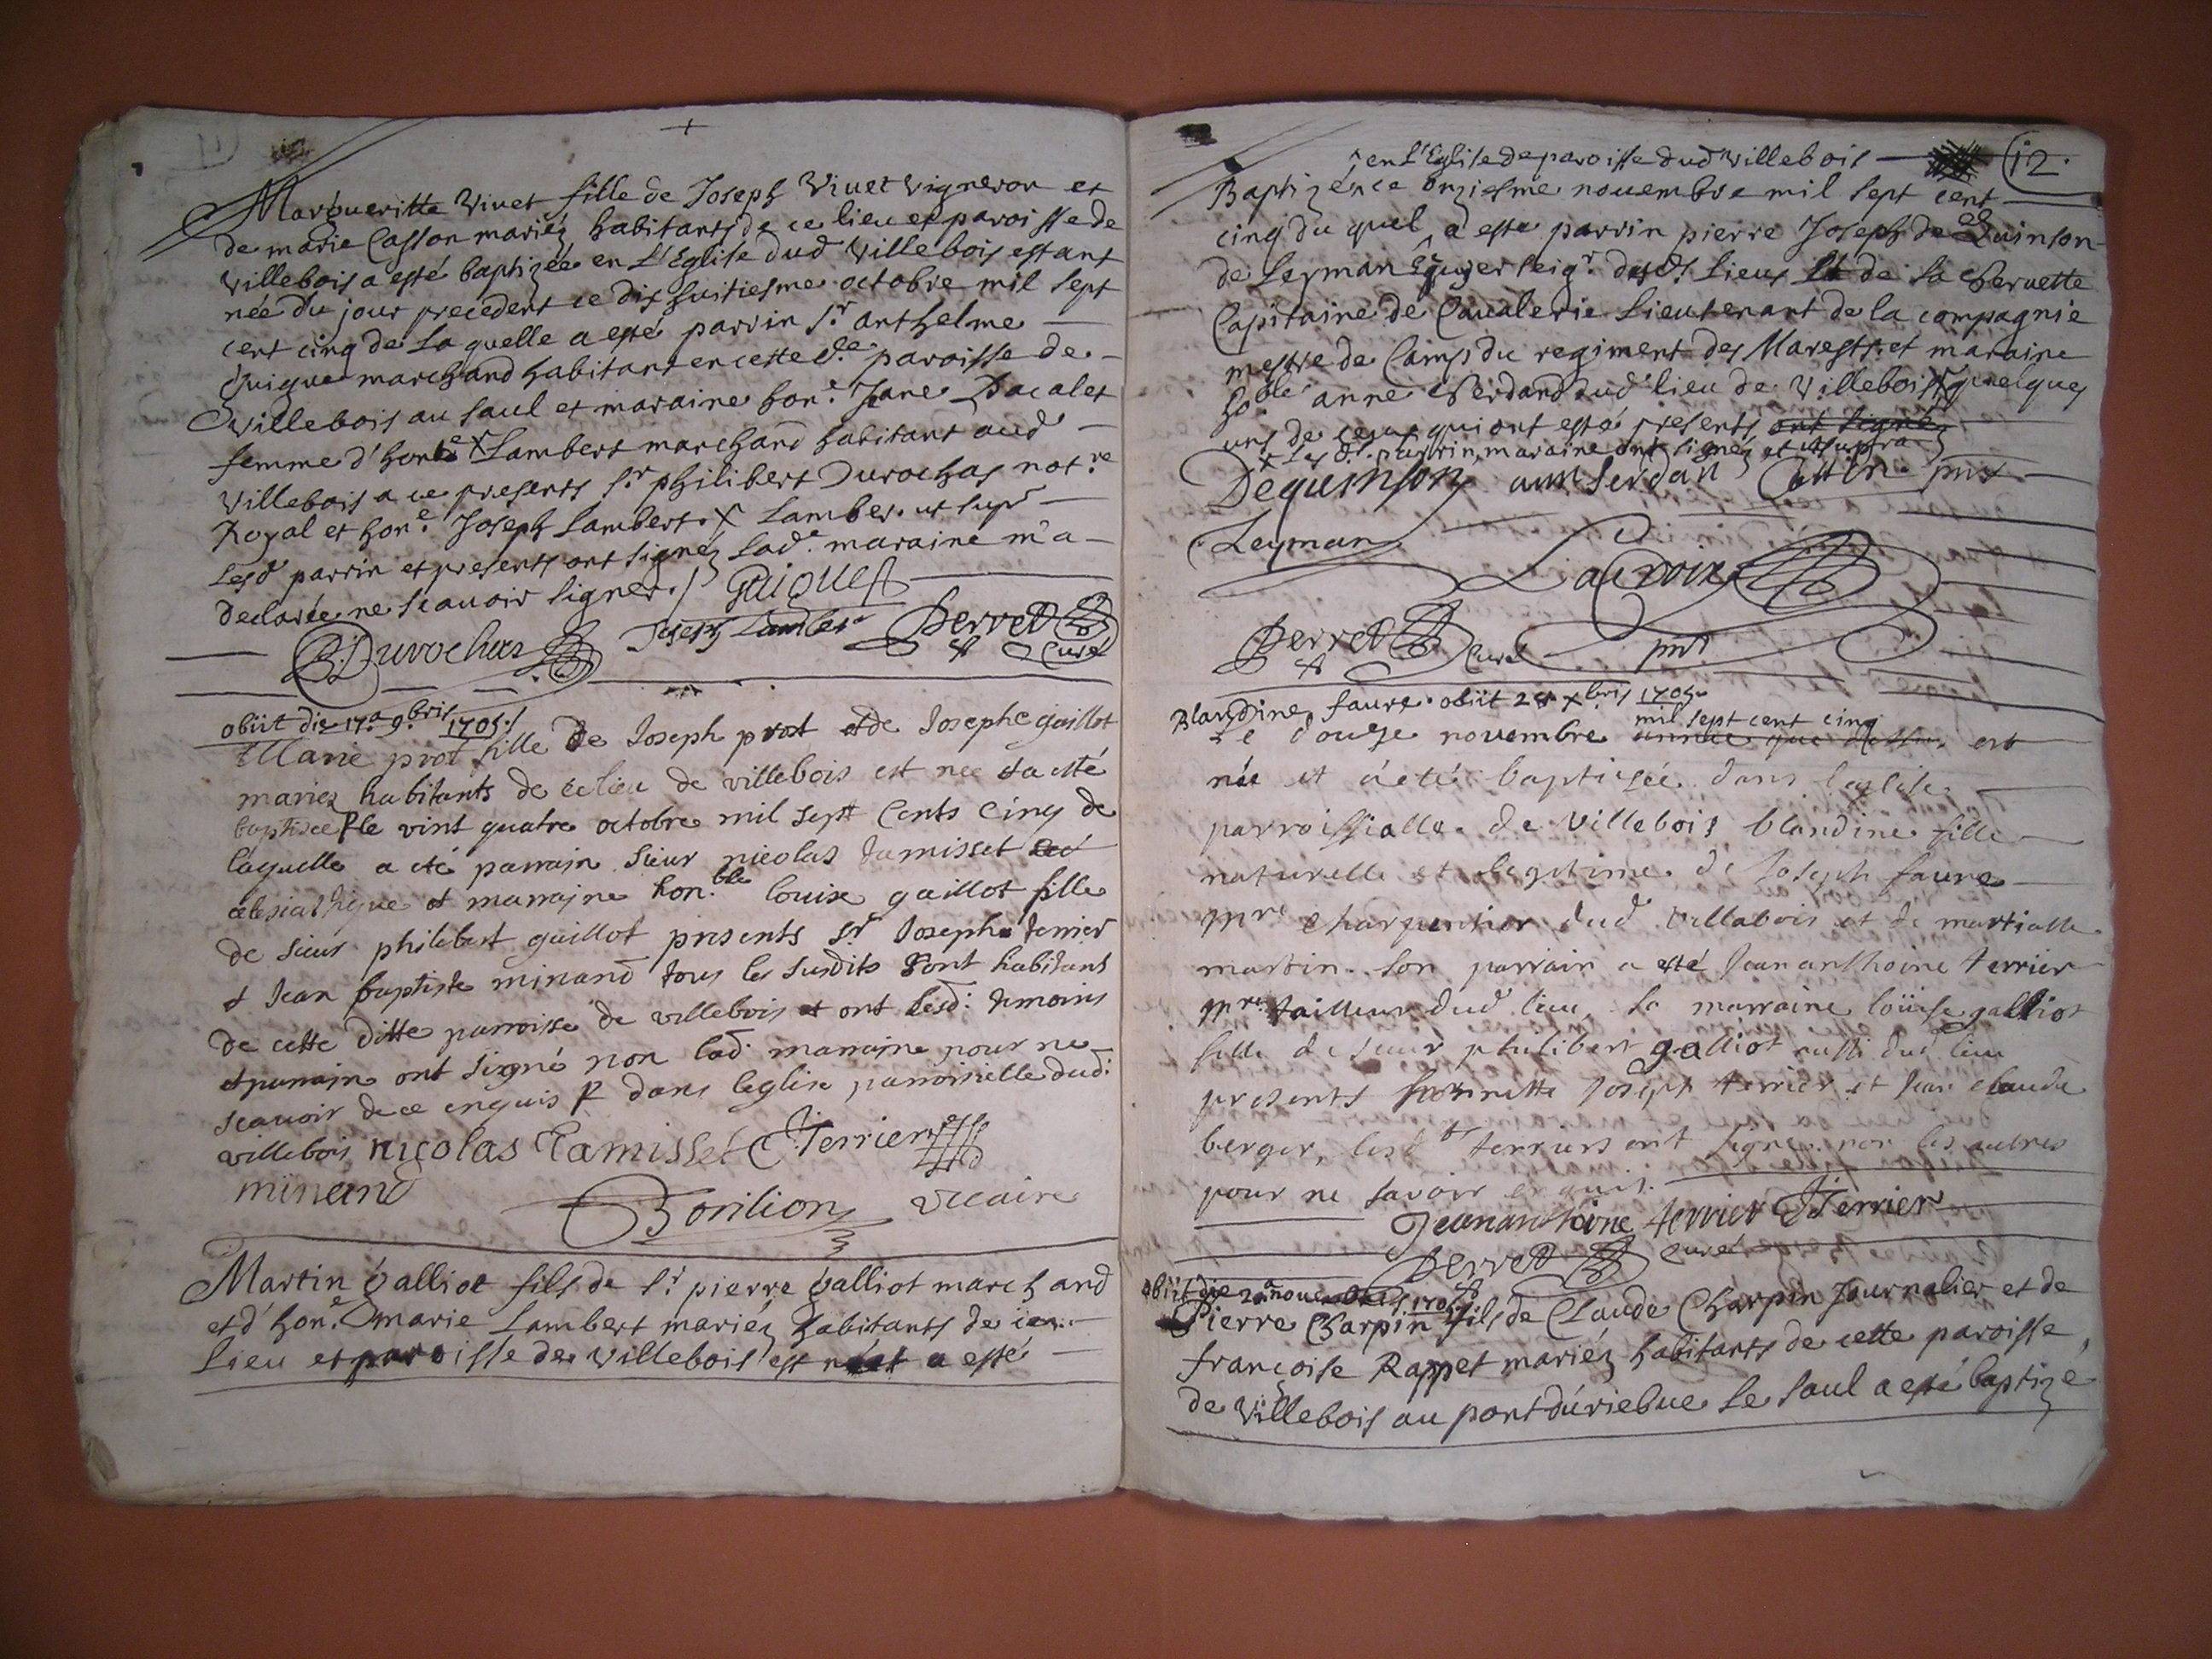 Margueritte Vivet fille de Joseph Vivet vigneron et
de marie Casson mariéz habitants de ce lieu et paroisse de
villebois a esté baptizée en L'Eglise dud villebois estant
née du jour precedent ce dix huitiesme octobre mil sept
cent cinq de laquelle a esté parrin Sr. anthelme
Guigue marchand habitant en cette d.e paroisse de
villebois au saul et maraine hon.e Jane Dacalet
femme d'hon.e x Lambert marchand habitant aud
villebois a ce presents Sr philibert Durochas not.re
Royal et hon.e Joseph Lambert. x Lamber. ut sup
Lesd parrin et presents ont signéz lad.e maraine m'a
declarée ne scavoir signer./ Guigue
Durochas Joseph Lamber Perret Curé
obiit die 17a 9bris 1705./
Marie prot fille de Joseph prot et de Josephe guillot
mariez habitants de ce lieu de villebois est nee et a esté
baptisée le vint quatre octobre mil sept Cents Cinq de
laquelle a eté parrain sieur nicolas tamisset
et marrayne hon.ble louise guillot fille
de sieur philebert guillot presents Sr Joseph terrier
et Jean baptiste minand tous les susdits sont habitans
de cette ditte parroisse de villebois et ont lesd: temoins
et parrain ont signé non lad. marraine pour ne
scavoir de ce enquis dans leglise parroissielle dud:
villebois nicolas Tamisset JTerrier
minand Borilion vicaire
Martin galliot fils de Sr pierre galliot marchand
et d'hon.e marie Lambert mariéz habitants de ce
lieu et paroisse de villebois est né et a esté
en L'Eglise de paroisse dud villebois 12.
Baptizé ce onziesme novembre mil sept cent
cinq du quel a esté parrin pierre Joseph de Quinson
de Leyman Equyer seigr. desds. lieux de la Chervette
Capitaine de Cavalerie Lieutenant de la compagnie
mestre de Camp du regiment des Marests et maraine
ho.ble anne Serdand dud lieu de villebois x quelques
uns de ceux qui ont esté presents ont signéz
x Lesd. parrin, maraine ont signéz et ut supra
Dequinson ann Serdan Cottin pnt
Leyman Lacroix
Perret Curé pnt
Blandine faure obiit 28 xbris 1705.
mil sept cent cinq
Le douze novembre année que dessus est
née et a eté baptisée dans leglise
parroissialle de villebois blandine fille
naturelle et legitime de Joseph faure
mre charpentier dud villebois et de martialle
martin. son parrain a esté Jean anthoine terrier
mre tailleur dud lieu, sa marraine loüise galliot
fille de sieur philibert galliot aussi dud lieu
presents Joseph terrier et Jean claude
berger, lesdt terriers ont signe non les autres
pour ne savoir enquis.
Jeananthoine terrier JTerrier
Perret curé
obiit die 20a novembris 1705
Pierre Charpin fils de Claude Charpin Journalier et de
francoise Rappet mariéz habitants de cette paroisse
de villebois au port du riebue le saul a esté baptizé